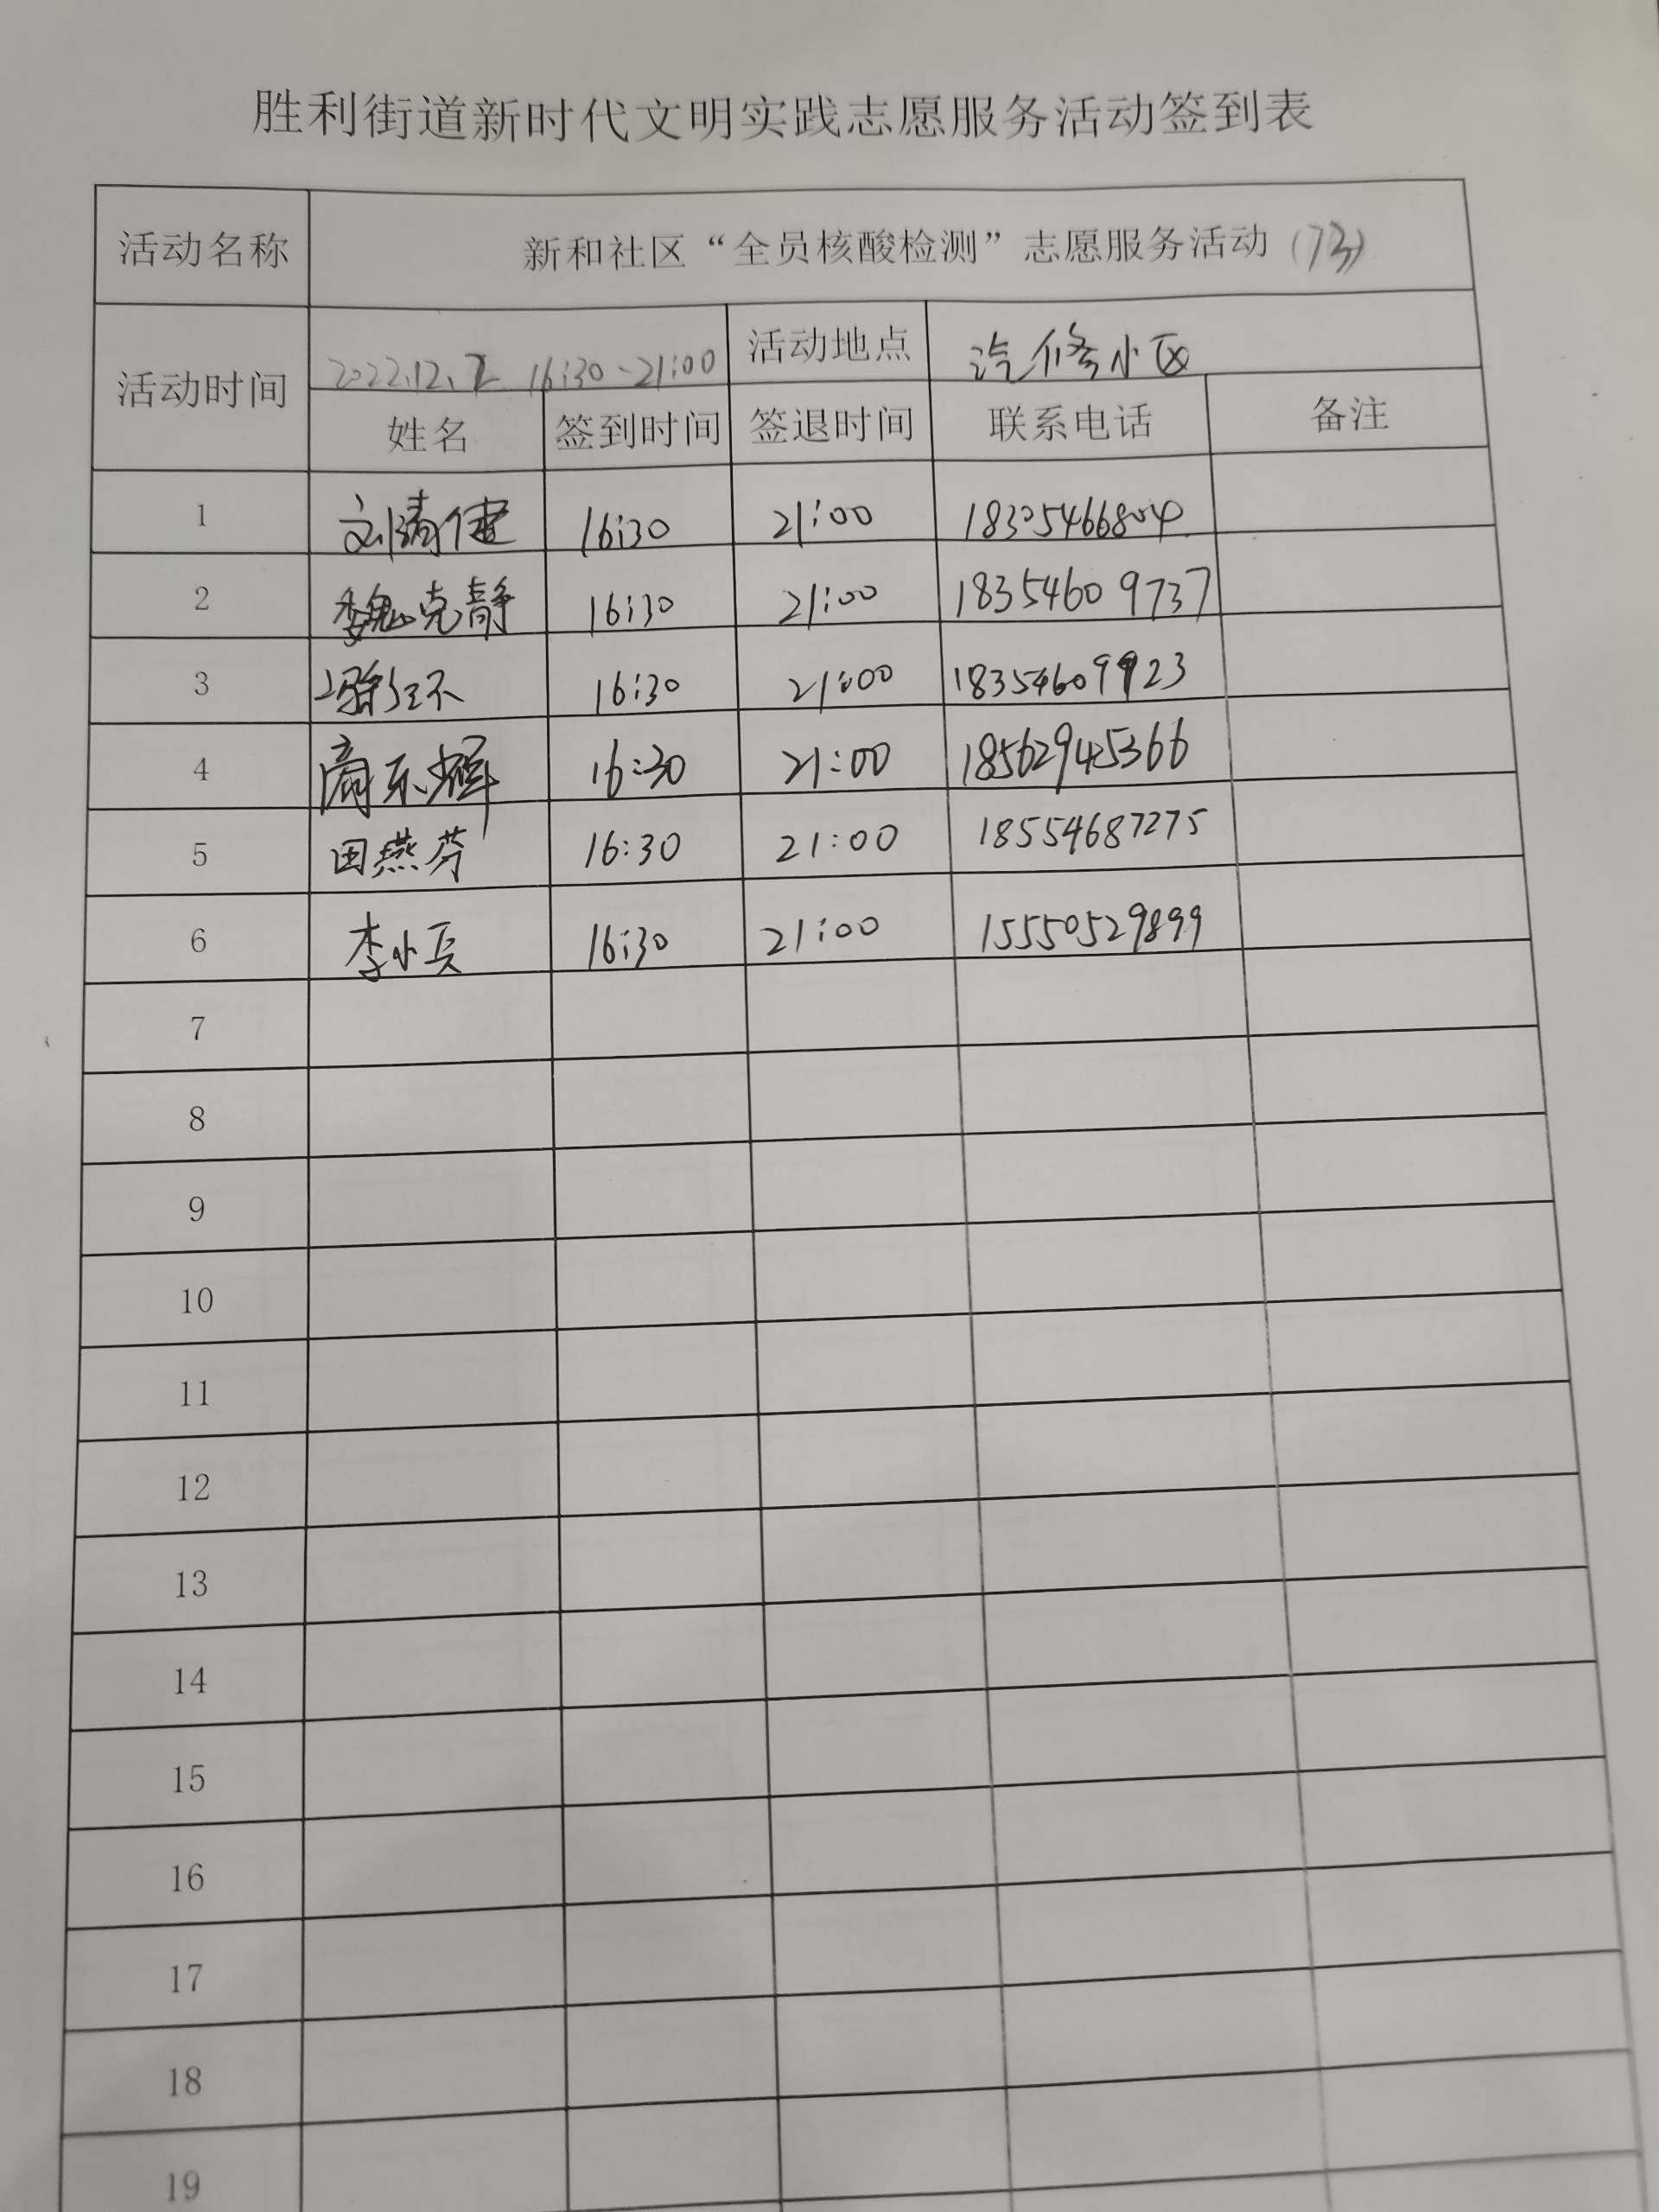 胜利街道新时代文明实践志愿服务活动签到表
活动名称 新和社区“全员核酸检测”志愿服务活动（73）
活动时间 2022.12.2 16:30-21:00 活动地点 汽修小区
姓名 签到时间 签退时间 联系电话 备注
1 刘清健 16:30 21:00 18305466804
2 魏克静 16:30 21:00 18354609737
3 16:30 21:00 18354609923
4 商乐辉 16:30 21:00 18562945366
5 田燕芬 16:30 21:00 18554687275
6 李小兵 16:30 21:00 15550529899
7
8
9
10
11
12
13
14
15
16
17
18
19